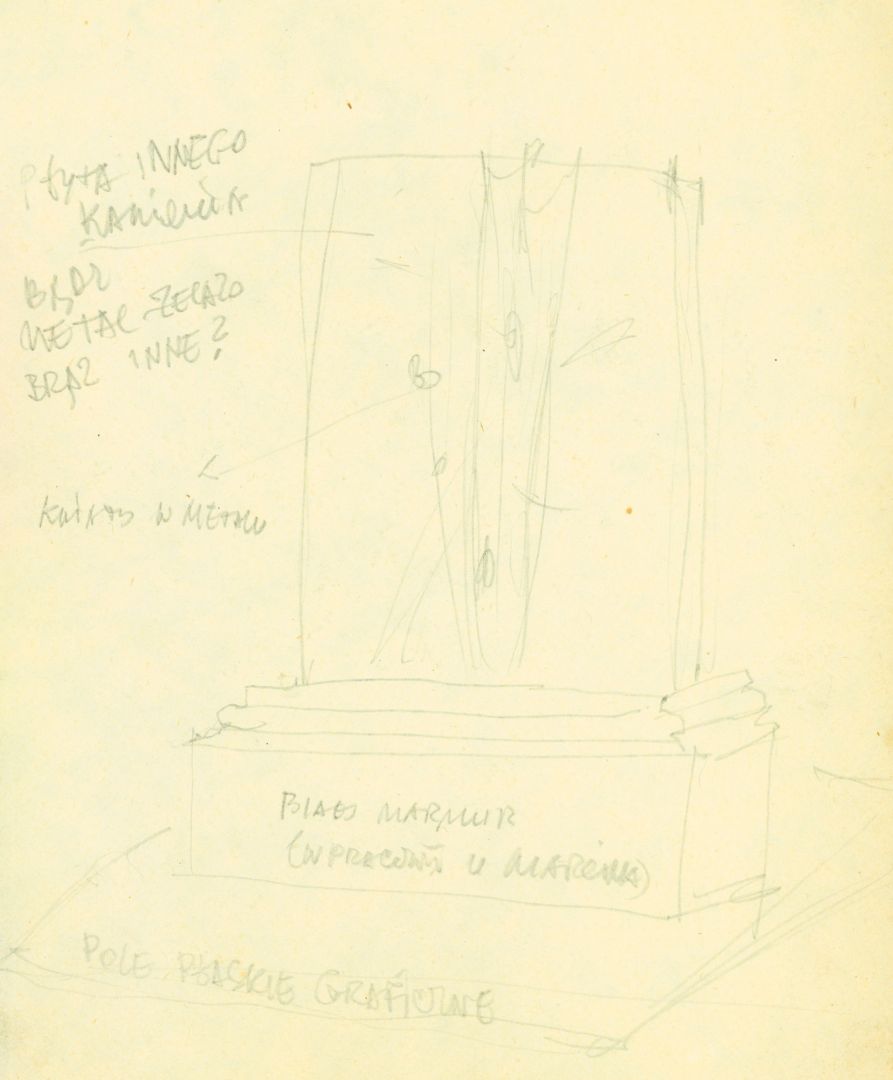 PŁYTA INNEGO
KAMIENIA
BĄDŹ
METAL ŻELAZO
BRĄZ INNE?
KWIATY W METALU
BIAŁY MARMUR
(W PRACOWNI U MARCINA)
POLE PŁASKIE GRAFICZNE